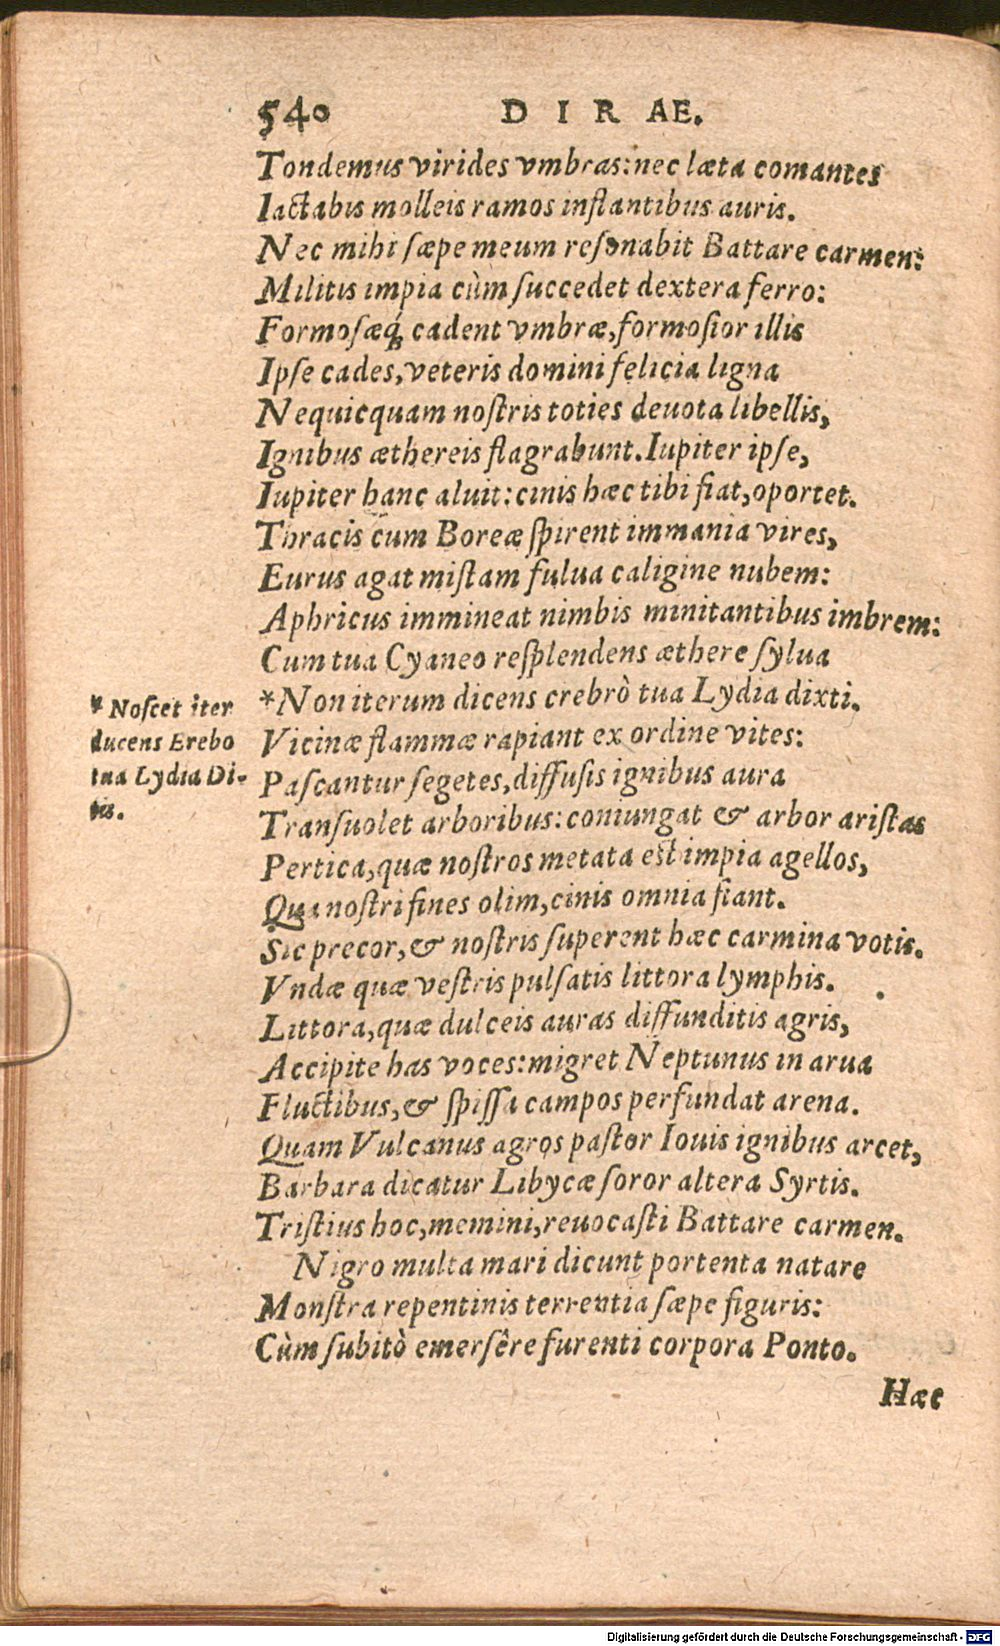 540 DIRAE.
Tondemus virides vmbras: nec læta comantes
Iactabis molleis ramos inflantibus auris.
Nec mihi sæpe meum resonabit Battare carmen:
Militis impia cùm succedet dextera ferro:
Formosæq́; cadent vmbræ, formosior illis
Ipse cades, veteris domini felicia ligna
Nequicquam nostris toties deuota libellis,
Ignibus æthereis flagrabunt. Iupiter ipse,
Iupiter hanc aluit: cinis hæc tibi fiat, oportet.
Thracis cum Boreæ spirent immania vires,
Eurus agat mistam fulua caligine nubem:
Aphricus immineat nimbis minitantibus imbrem:
Cum tua Cyaneo resplendens æthere sylua
*Non iterum dicens crebrò tua Lydia dixti.
Vicinæ flammæ rapiant ex ordine vites:
Pascantur segetes, diffusis ignibus aura
Transuolet arboribus: coniungat & arbor aristas
Pertica, quæ nostros metata est impia agellos,
Qua nostri fines olim, cinis omnia fiant.
Sic precor, & nostris superent hæc carmina votis.
Vndæ quæ vestris pulsatis littora lymphis.
Littora, quæ dulceis auras diffunditis agris,
Accipite has voces: migret Neptunus in arua
Fluctibus, & spissa campos perfundat arena.
Quam Vulcanus agros pastor Iouis ignibus arcet,
Barbara dicatur Libycæ soror altera Syrtis.
Tristius hoc, memini, reuocasti Battare carmen.
Nigro multa mari dicunt portenta natare
Monstra repentinis terrentia sæpe figuris:
Cùm subitò emersêre furenti corpora Ponto.
Hæc
* Noscet iter
ducens Erebo
tua Lydia Di-
tis.
Digitalisierung gefördert durch die Deutsche Forschungsgemeinschaft - DFG